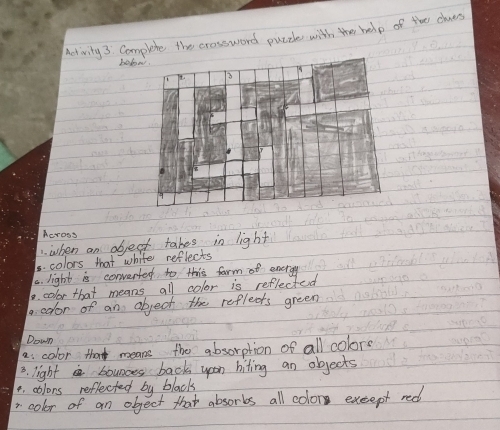 Activity 3 Complete the crossword puzzle with the help of the clues
below.
1 2 3 4
5
6 7
8
9
Across
1. when an object takes in light
5. colors that white reflects
6. light is converted to this form of energy
8. color that means all color is reflected
9. color of an object the reflects green
Down
2. color that means the absorption of all colors
3. light bounces back upon hiting an objects
4. colors reflected by black
7. color of an object that absorbs all colors except red